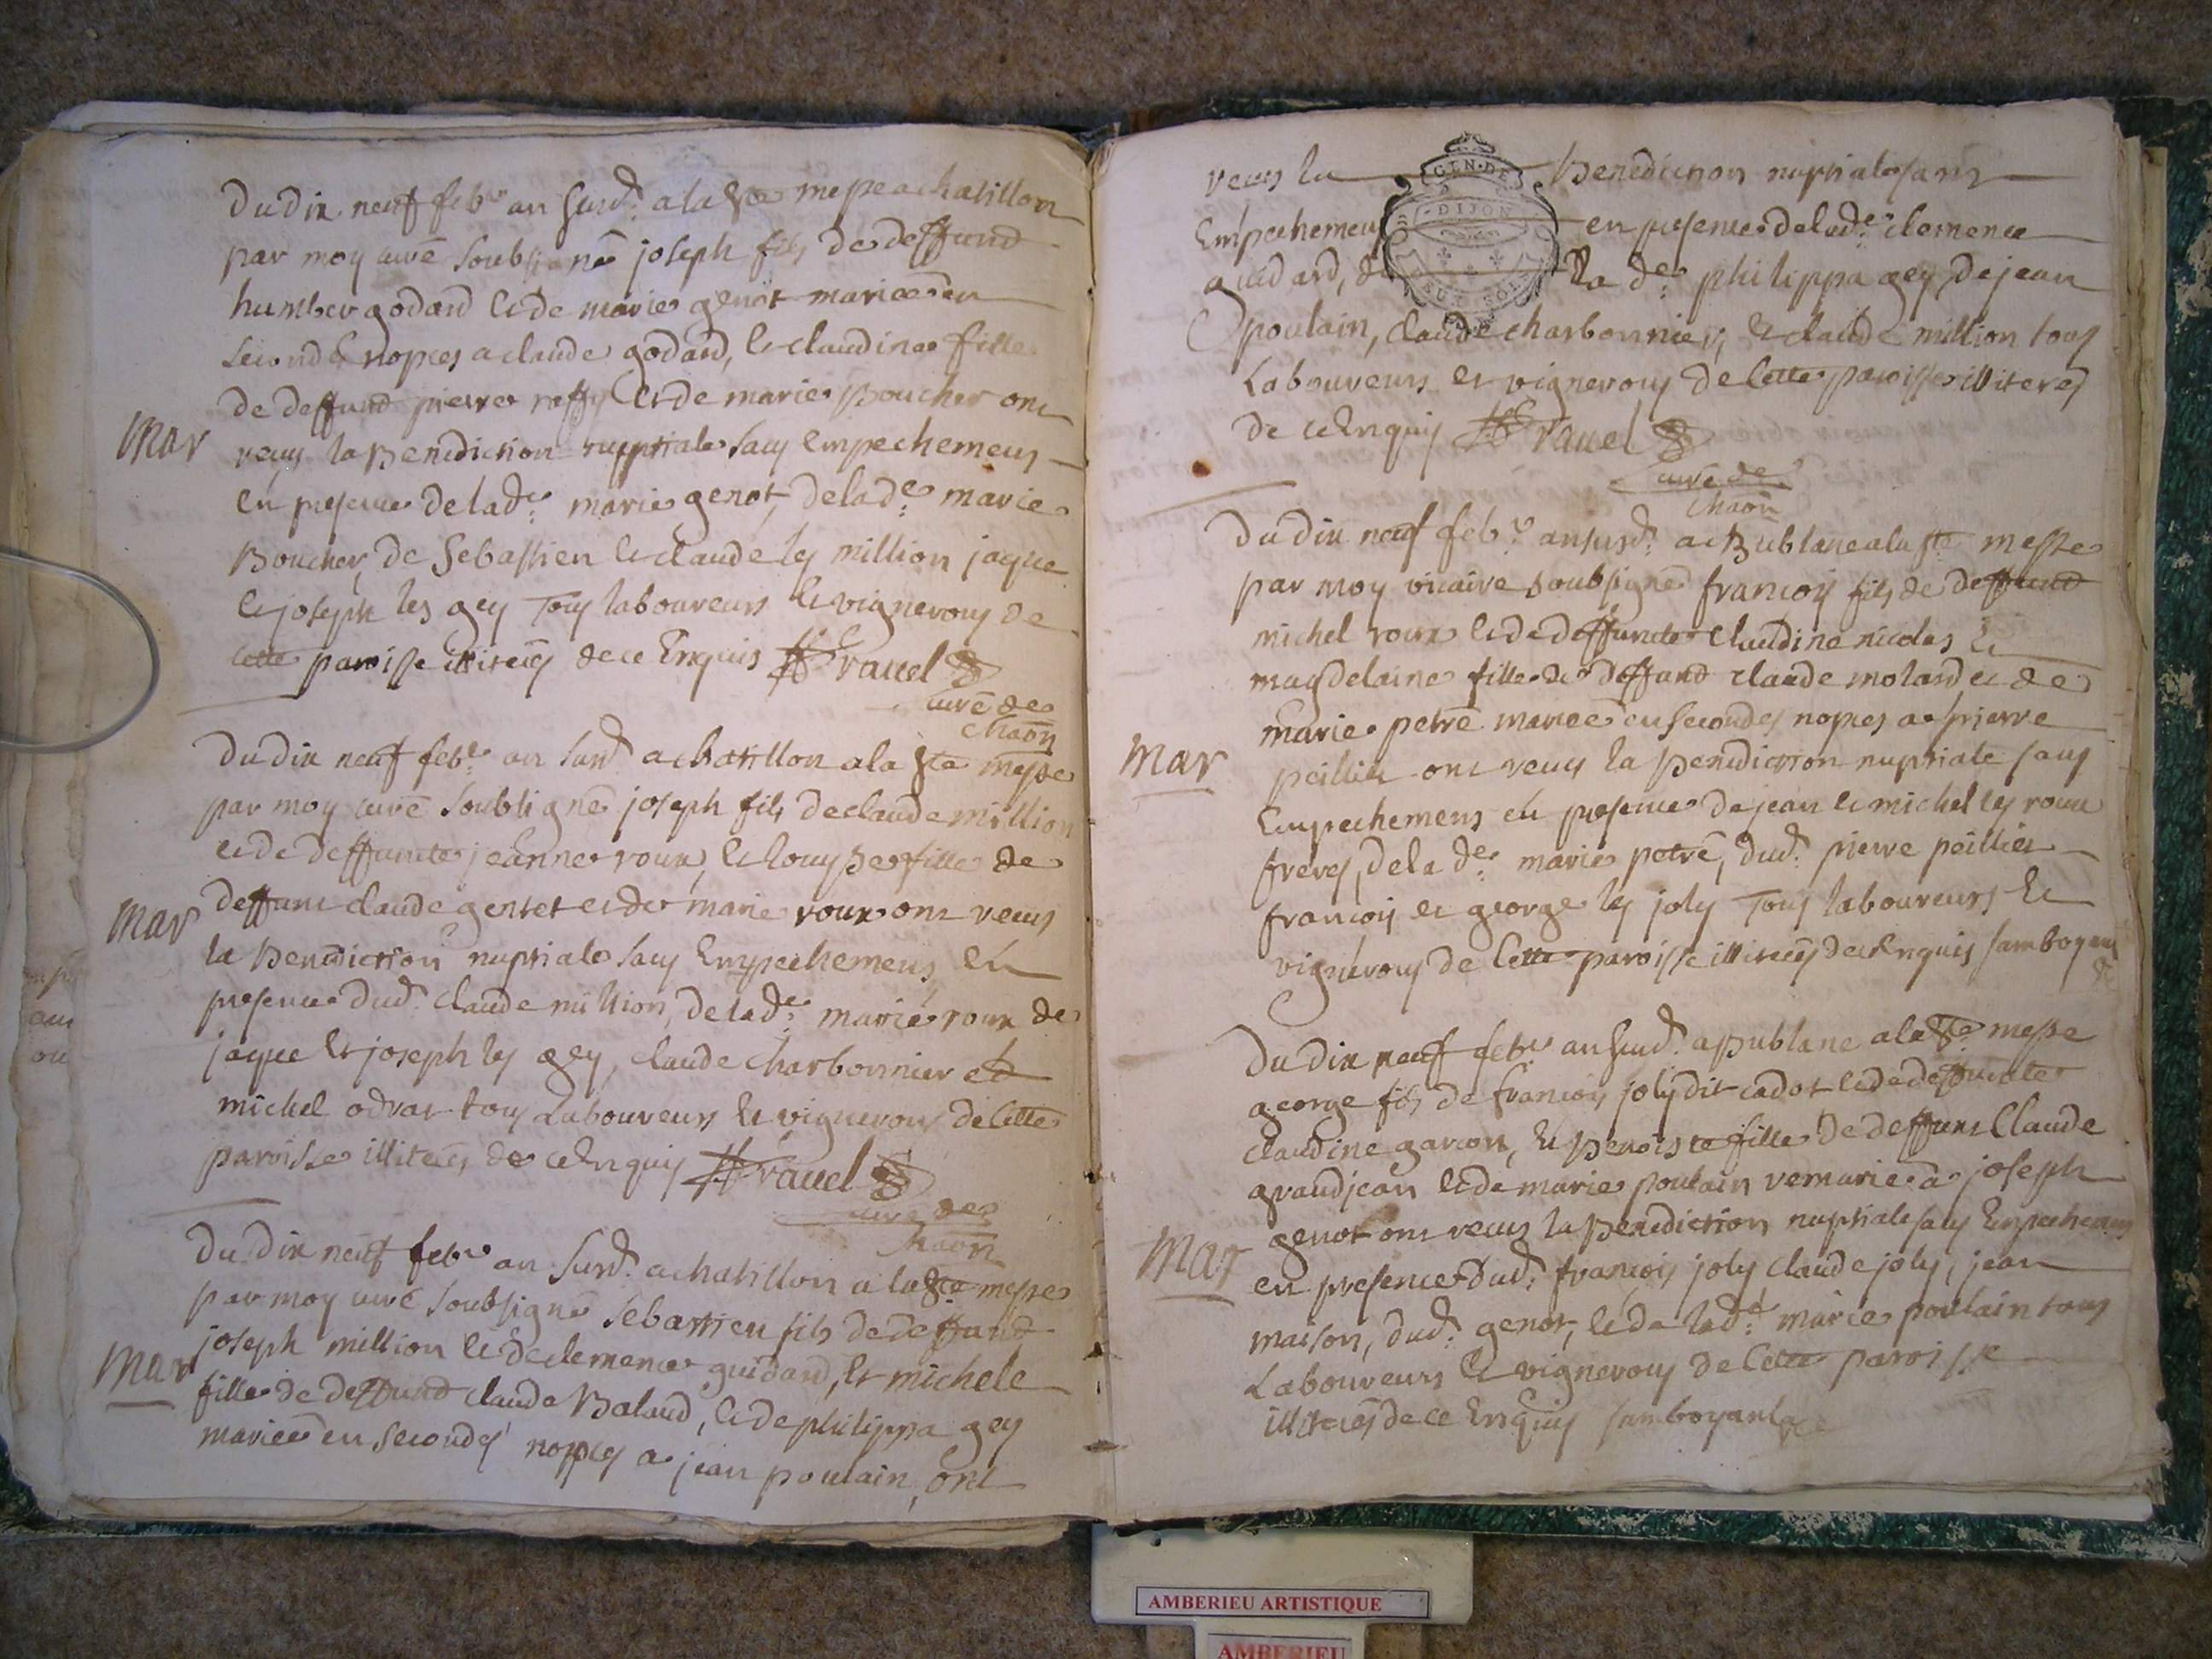 du dix neuf feb.r an susd. a la ste messe a chatillon
par moy curé soubsigné joseph fils de deffund
humber godard & de marie genot mariee en
secondes nopces a claude godard, & claudine fille
de deffund pierre raffy & de marie boucher ont
Mar
receus la benediction nuptiale sans empechemens
en presence de lad.e marie genot, de la d.e marie
boucher, de sebastien & claude les million jaque
& joseph les gey tous laboureurs & vignerons de
cette paroisse illiterés de ce enquis ravel
curé de
chaon
du dix neuf feb.r an susd. a chatillon a la ste messe
par moy curé soubsigné joseph fils de claude million
& de deffuncte jeanne roux, & louyse fille de
Mar
deffunt claude gentet & de marie roux ont receus
la benediction nuptiale sans empechemens en
presence dud. claude million, de lad.e marie roux de
jaque & joseph les gey, claude charbonnier et
michel odrat tous laboureurs & vignerons de cette
paroisse illiterés de ce enquis ravel
curé de
chaon
du dix neuf feb.r an susd. a chatillon a la ste messe
par moy curé soubsigné sebastien fils de deffund
Mar
joseph million & de clemence guidard, & michele
fille de deffund claude balaud, & de philippa gey
mariee en secondes nopces a jean poulain, ont
GEN. DE
DIJON
receus la benediction nuptiale sans
empechemens en presence de lad.e clemence
guidard, de la d.e philippa gey, de jean
poulain, claude charbonnier, & claude million tous
laboureurs & vignerons de cette paroisse illiterés
de ce enquis ravel
curé de
chaon
du dix neuf feb.r an susd. a bublane a la ste messe
par moy vicaire soubsigné françois fils de deffund
michel roux & de deffuncte claudine nicolas &
magdelaine fille de deffund claude molard & de
marie petre mariee en secondes nopces a pierre
Mar
peillier ont receus la benediction nuptiale sans
empechemens en presence de jean & michel les roux
freres, de la d.e marie petre, dud. pierre peillier
françois & george les joly tous laboureurs &
vignerons de cette paroisse illiterés de ce enquis
du dix neuf feb.r an susd. a bublane a la ste messe
george fils de françois joly dit cadot & de deffuncte
claudine garcon, & benoiste fille de deffunt claude
grandjean & de marie poulain remariee a joseph
Mar
genot ont receus la benediction nuptiale sans empechemens
en presence dud. françois joly claude joly, jean
maison, dud. genot, & de lad.e marie poulain tous
laboureurs & vignerons de cette paroisse
illiterés de ce enquis
AMBERIEU ARTISTIQUE
AMBERIEU